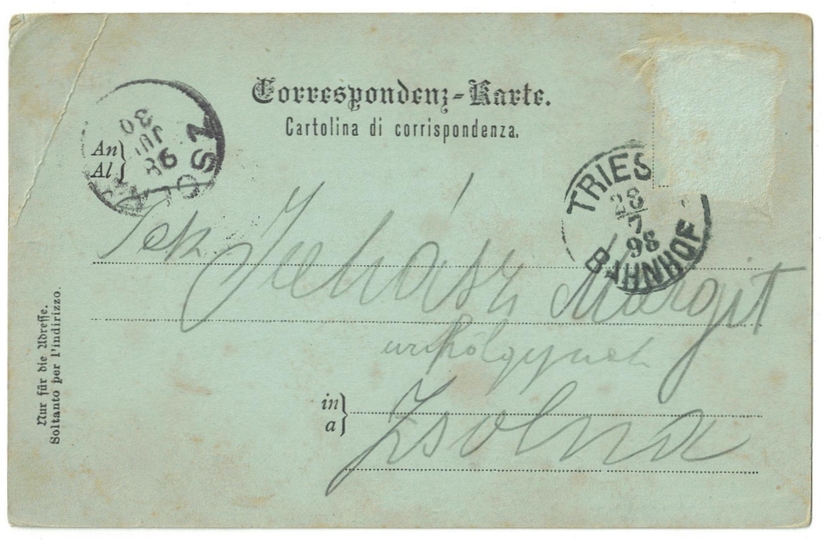 Correspondenz-Karte.
Cartolina di corrispondenza.
An
Al
30
JUL
98
TRIEST
28
7
98
BAHNHOF
Tek. Juhász Margit
urhölgynek
in
a
Zsolna
Nur für die Adresse.
Soltanto per l'indirizzo.